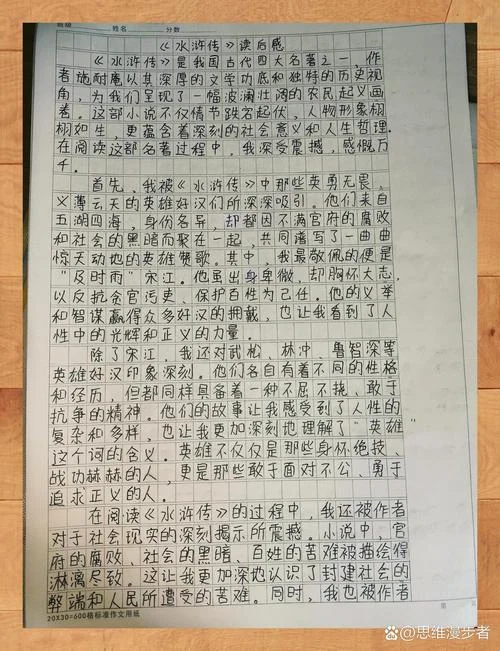 班级 姓名 分数
《水浒传》读后感
《水浒传》是我国古代四大名著之一,作
者施耐庵以其深厚的文学功底和独特的历史视
角,为我们呈现了一幅波澜壮阔的农民起义画
卷。这部小说不仅情节跌宕起伏,人物形象栩
栩如生,更蕴含着深刻的社会意义和人生哲理。
在阅读这部名著过程中,我深受震撼,感慨万
千。
首先,我被《水浒传》中那些英勇无畏、
义薄云天的英雄好汉们所深深吸引。他们来自
五湖四海,身份各异,却都因不满官府的腐败
和社会的黑暗而聚在一起,共同谱写了一曲曲
惊天动地的英雄赞歌。其中,我最敬佩的便是
“及时雨”宋江。他虽出身卑微,却胸怀大志,
以反抗贪官污吏、保护百姓为己任。他的义举
和智谋赢得众多好汉的拥戴,也让我看到了人
性中的光辉和正义的力量。
除了宋江,我还对武松、林冲、鲁智深等
英雄好汉印象深刻。他们各自有着不同的性格
和经历,但都同样具备着一种不屈不挠、敢于
抗争的精神。他们的故事让我感受到了人性的
复杂和多样,也让我更加深刻地理解了“英雄”
这个词的含义。英雄不仅仅是那些身怀绝技、
战功赫赫的人,更是那些敢于面对不公、勇于
追求正义的人。
在阅读《水浒传》的过程中,我还被作者
对于社会现实的深刻揭示所震撼。小说中,官
府的腐败、社会的黑暗、百姓的苦难被描绘得
淋漓尽致。这让我更加深地认识了封建社会的
弊端和人民所遭受的苦难。同时,我也被作者
20X30=600格标准作文用纸
第
@思维漫步者